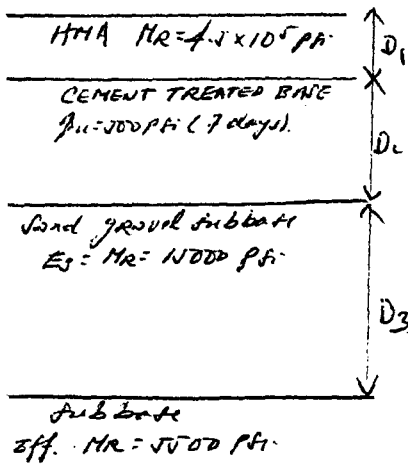 HMA MR=4.5×10⁵ psi
D1
CEMENT TREATED BASE
qu=500 psi (7 days).
D2
Sand gravel subbase
E3= MR= 15000 psi.
D3
subbase
Eff. MR= 5500 psi.